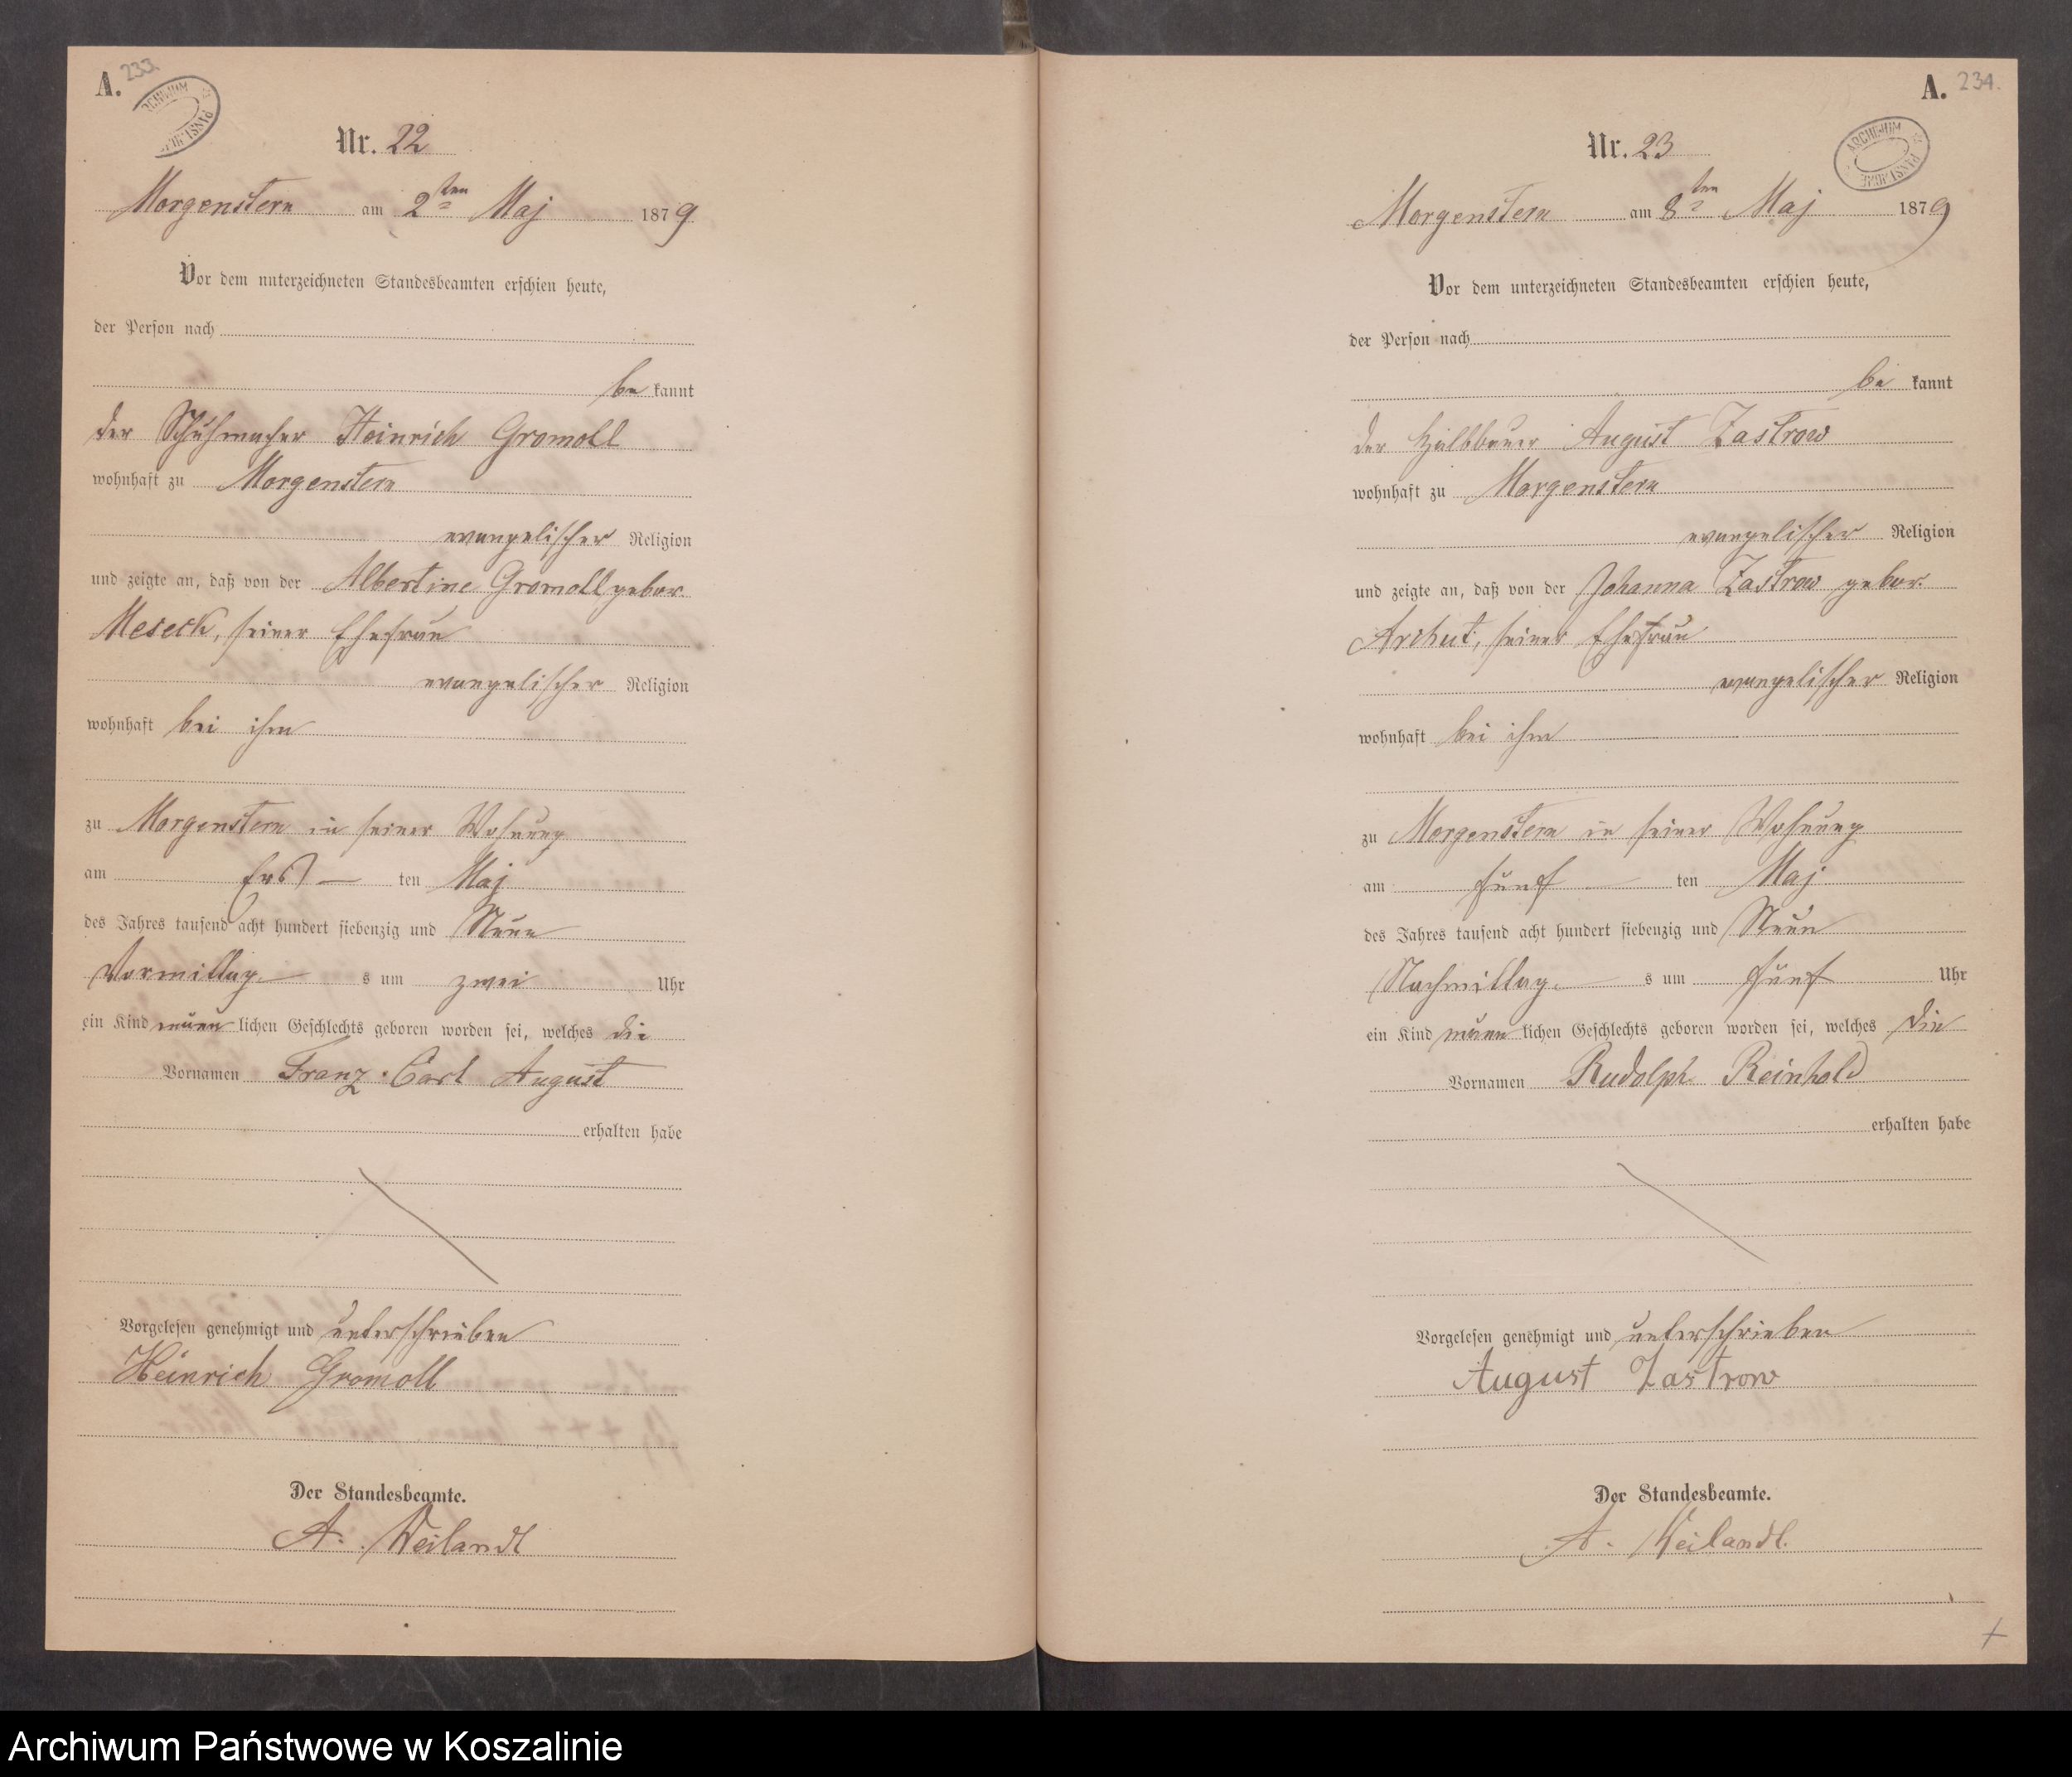 A. 233.
ARCHIWUM PAŃSTWOWE
Nr. 22
Morgenstern am 2ten Maj 1879
Vor dem unterzeichneten Standesbeamten erschien heute,
der Person nach
be kannt
der Schuhmacher Heinrich Gromoll
wohnhaft zu Morgenstern
evangelischer Religion
und zeigte an, daß von der Albertine Gromoll gebor.
Meseck, seiner Ehefrau
evangelischer Religion
wohnhaft bei ihm
zu Morgenstern in seiner Wohnung
am Erst ten Maj
des Jahres tausend acht hundert siebenzig und Neun
Vormittag s um zwei Uhr
ein Kind männ lichen Geschlechts geboren worden sei, welches die
Vornamen Franz Carl August
erhalten habe
Vorgelesen genehmigt und unterschrieben
Heinrich Gromoll
Der Standesbeamte.
A. Weilandt
A. 234.
ARCHIWUM PAŃSTWOWE
Nr. 23
Morgenstern am 8ten Maj 1879
Vor dem unterzeichneten Standesbeamten erschien heute,
der Person nach
be kannt
der Halbbauer August Zastrow
wohnhaft zu Morgenstern
evangelischer Religion
und zeigte an, daß von der Johanna Zastrow gebor.
Archut, seiner Ehefrau
evangelischer Religion
wohnhaft bei ihm
zu Morgenstern in seiner Wohnung
am fünf ten Maj
des Jahres tausend acht hundert siebenzig und Neun
Nachmittag s um fünf Uhr
ein Kind männ lichen Geschlechts geboren worden sei, welches die
Vornamen Rudolph Reinhold
erhalten habe
Vorgelesen genehmigt und unterschrieben
August Zastrow
Der Standesbeamte.
A. Weilandt.
Archiwum Państwowe w Koszalinie